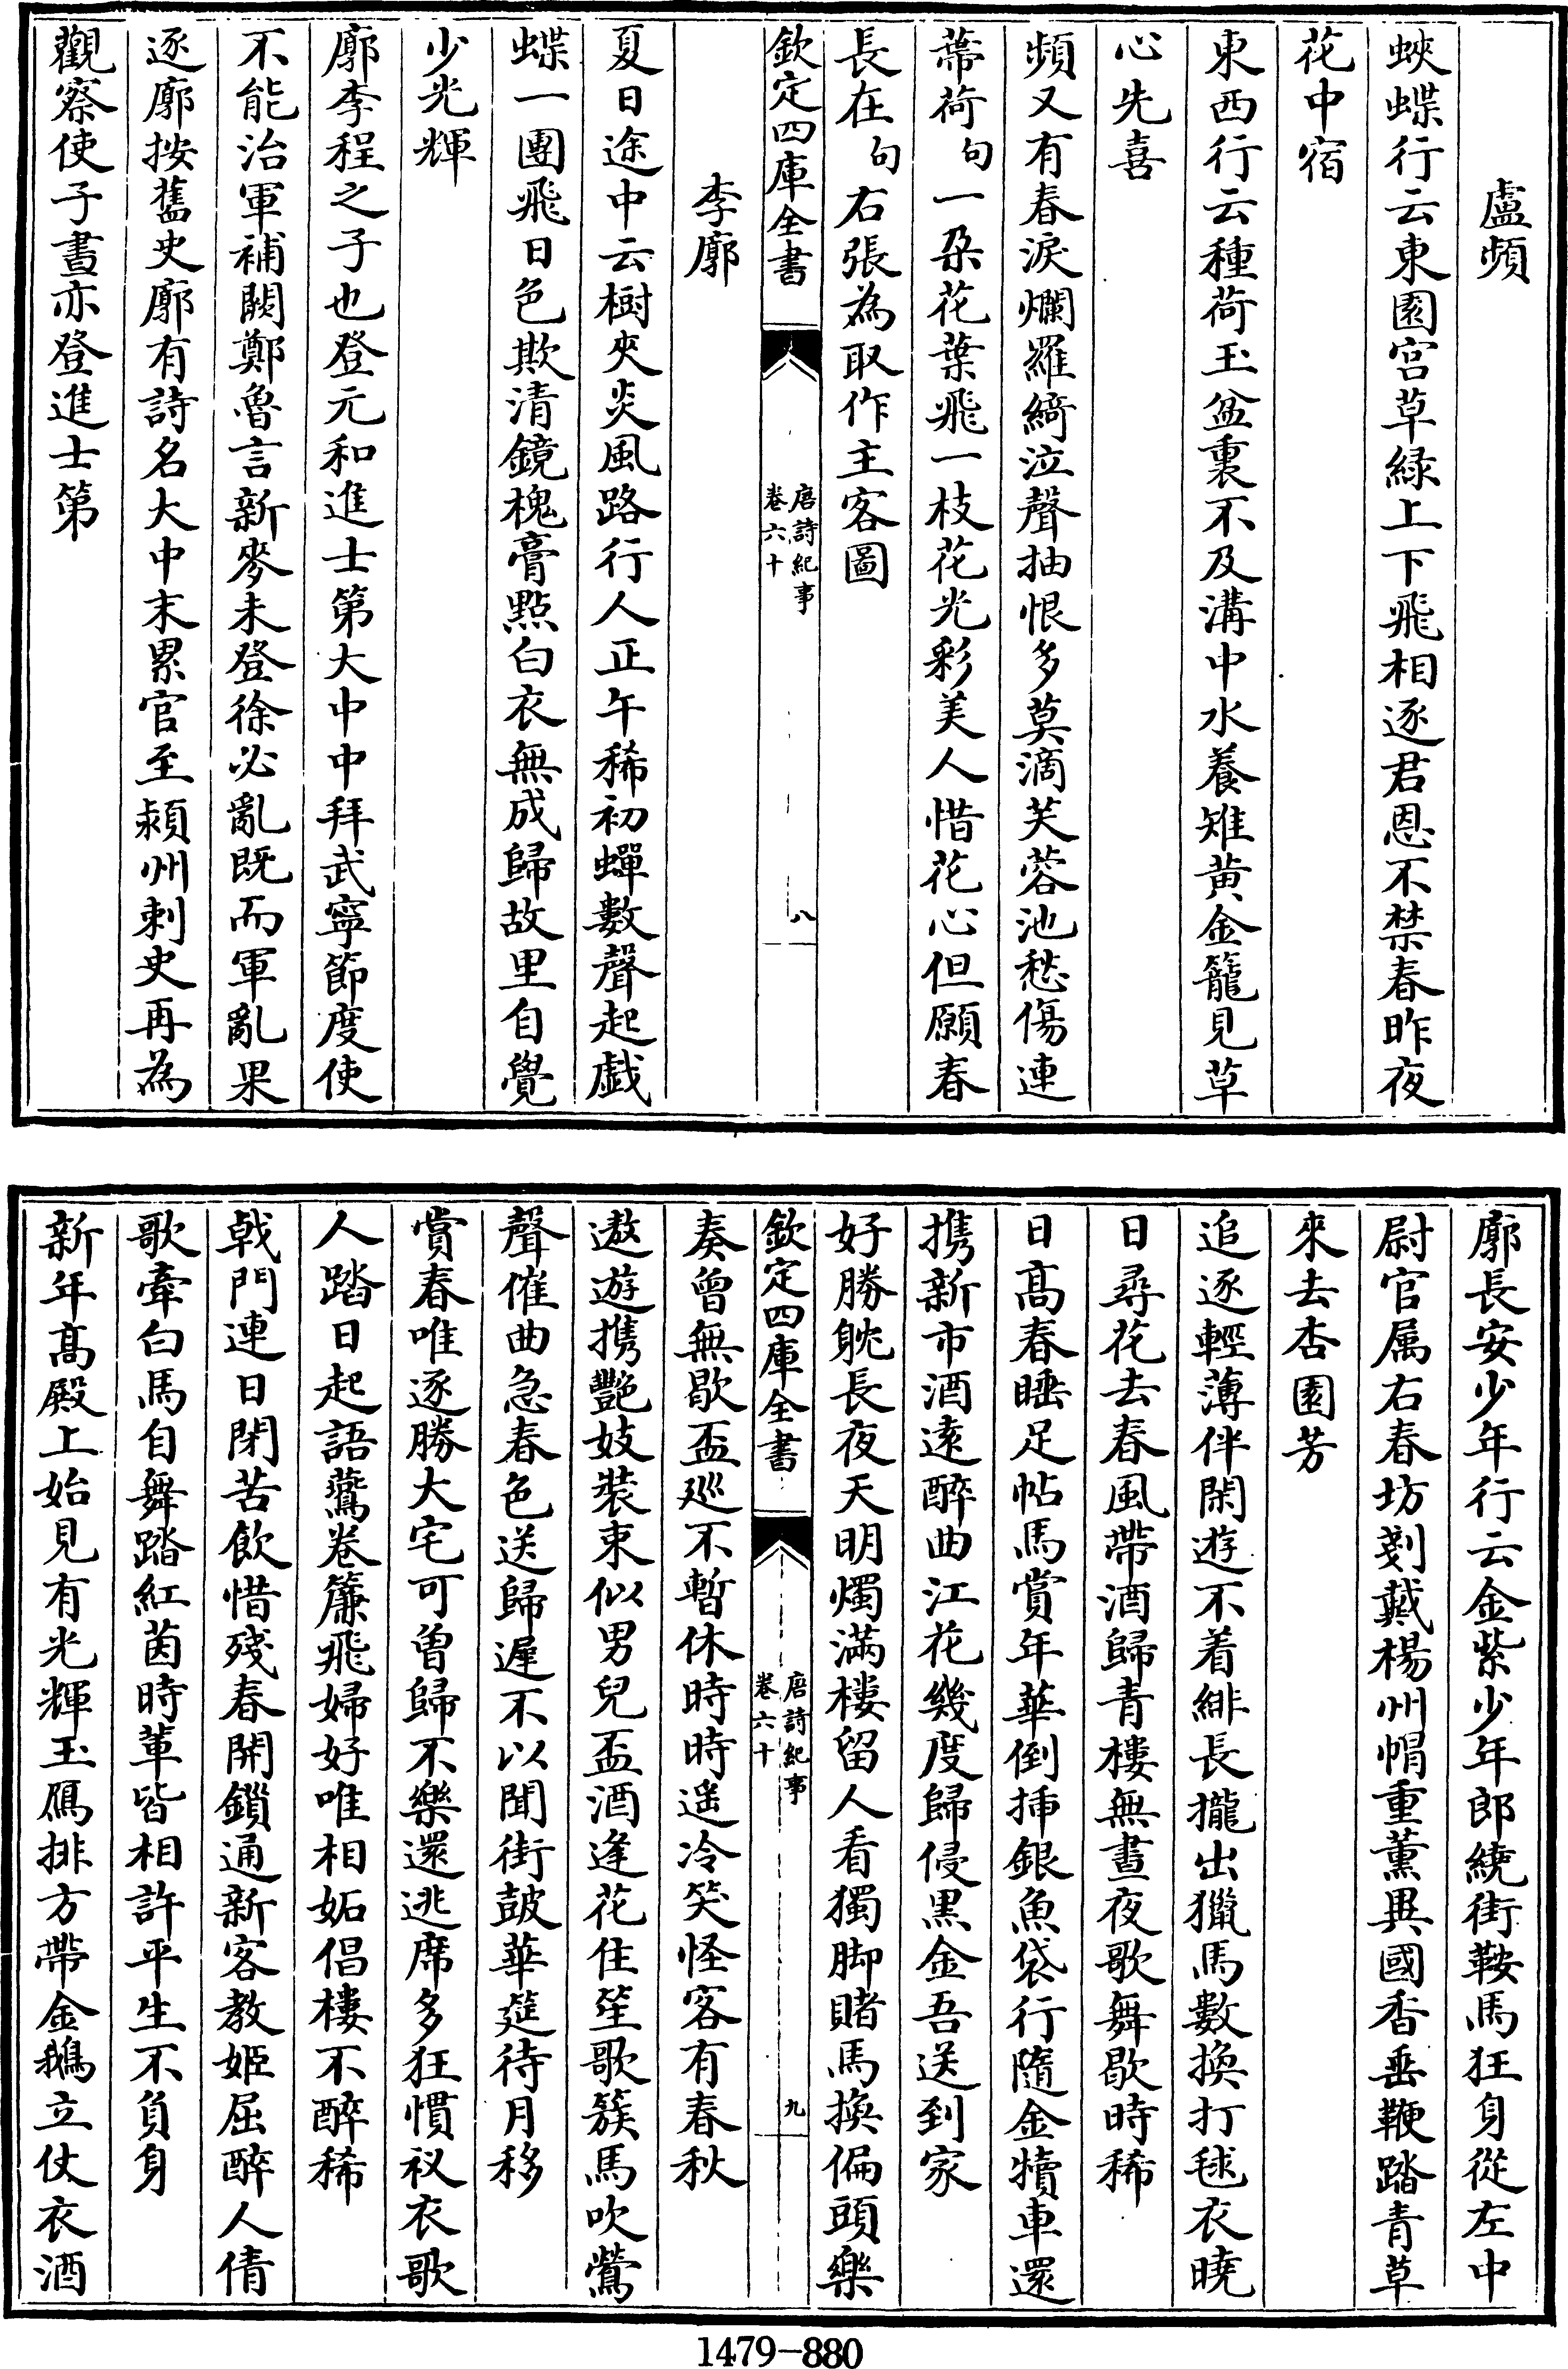 盧頻
蛺蝶行云東園宫草緑上下飛相逐君恩不禁春昨夜
花中宿
東西行云種荷玉盆裏不及溝中水養雉黄金籠見草
心先喜
頻又有春淚爛羅綺泣聲抽恨多莫滴芙蓉池愁傷連
蔕荷句一朶花葉飛一枝花光彩美人惜花心但願春
長在句右張為取作主客圖
欽定四庫全書
唐詩紀事
卷六十
八
李廓
夏日途中云樹夾炎風路行人正午稀初蟬數聲起戯
蝶一團飛日色欺清鏡槐膏點白衣無成歸故里自覺
少光輝
廓李程之子也登元和進士第大中中拜武寧節度使
不能治軍補闕鄭魯言新麥未登徐必亂既而軍亂果
逐廓按舊史廓有詩名大中末累官至潁州刺史再為
觀察使子晝亦登進士第
廓長安少年行云金紫少年郎繞街鞍馬狂身從左中
尉官属右春坊剗戴楊州帽重薰異國香垂鞭踏青草
來去杏園芳
追逐輕薄伴閑遊不着緋長攏出獵馬數換打毬衣曉
日尋花去春風帶酒歸青樓無晝夜歌舞歇時稀
日高春睡足帖馬賞年華倒揷銀魚袋行隨金犢車還
携新市酒逺醉曲江花幾度歸侵黒金吾送到家
好勝躭長夜天明燭滿樓留人看獨脚賭馬換偏頭樂
欽定四庫全書
唐詩紀事
卷六十
九
奏曾無歇盃廵不暫休時時遥冷笑怪客有春秋
遨遊携艷妓裝束似男兒盃酒逢花住笙歌簇馬吹鶯
聲催曲急春色送歸遲不以聞街鼓華筵待月移
賞春唯逐勝大宅可曽歸不樂還逃席多狂慣衩衣歌
人踏日起語鷰卷簾飛婦好唯相妬倡樓不醉稀
戟門連日閉苦飲惜殘春開鎻通新客教姬屈醉人倩
歌牽白馬自舞踏紅茵時軰皆相許平生不負身
新年髙殿上始見有光輝玉鴈排方帶金鵝立仗衣酒
1479-880